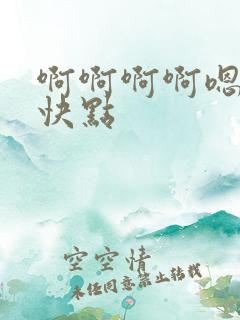 啊啊啊啊嗯
快點
空空情
未经同意禁止转载